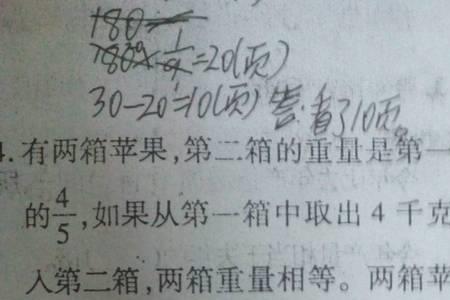 180
180×1/9=20(页)
30-20=10(页) 答:看了10页。
4.有两箱苹果,第二箱的重量是第一
的4/5,如果从第一箱中取出4千克
入第二箱,两箱重量相等。两箱苹